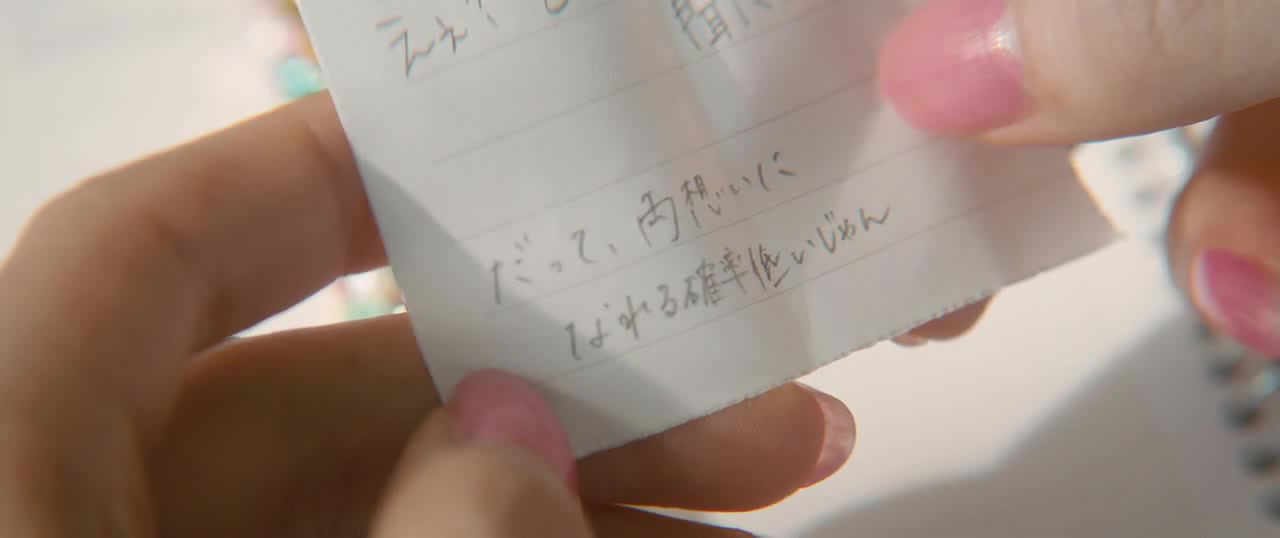 ええ
だって、両想いに
なれる確率低いじゃん